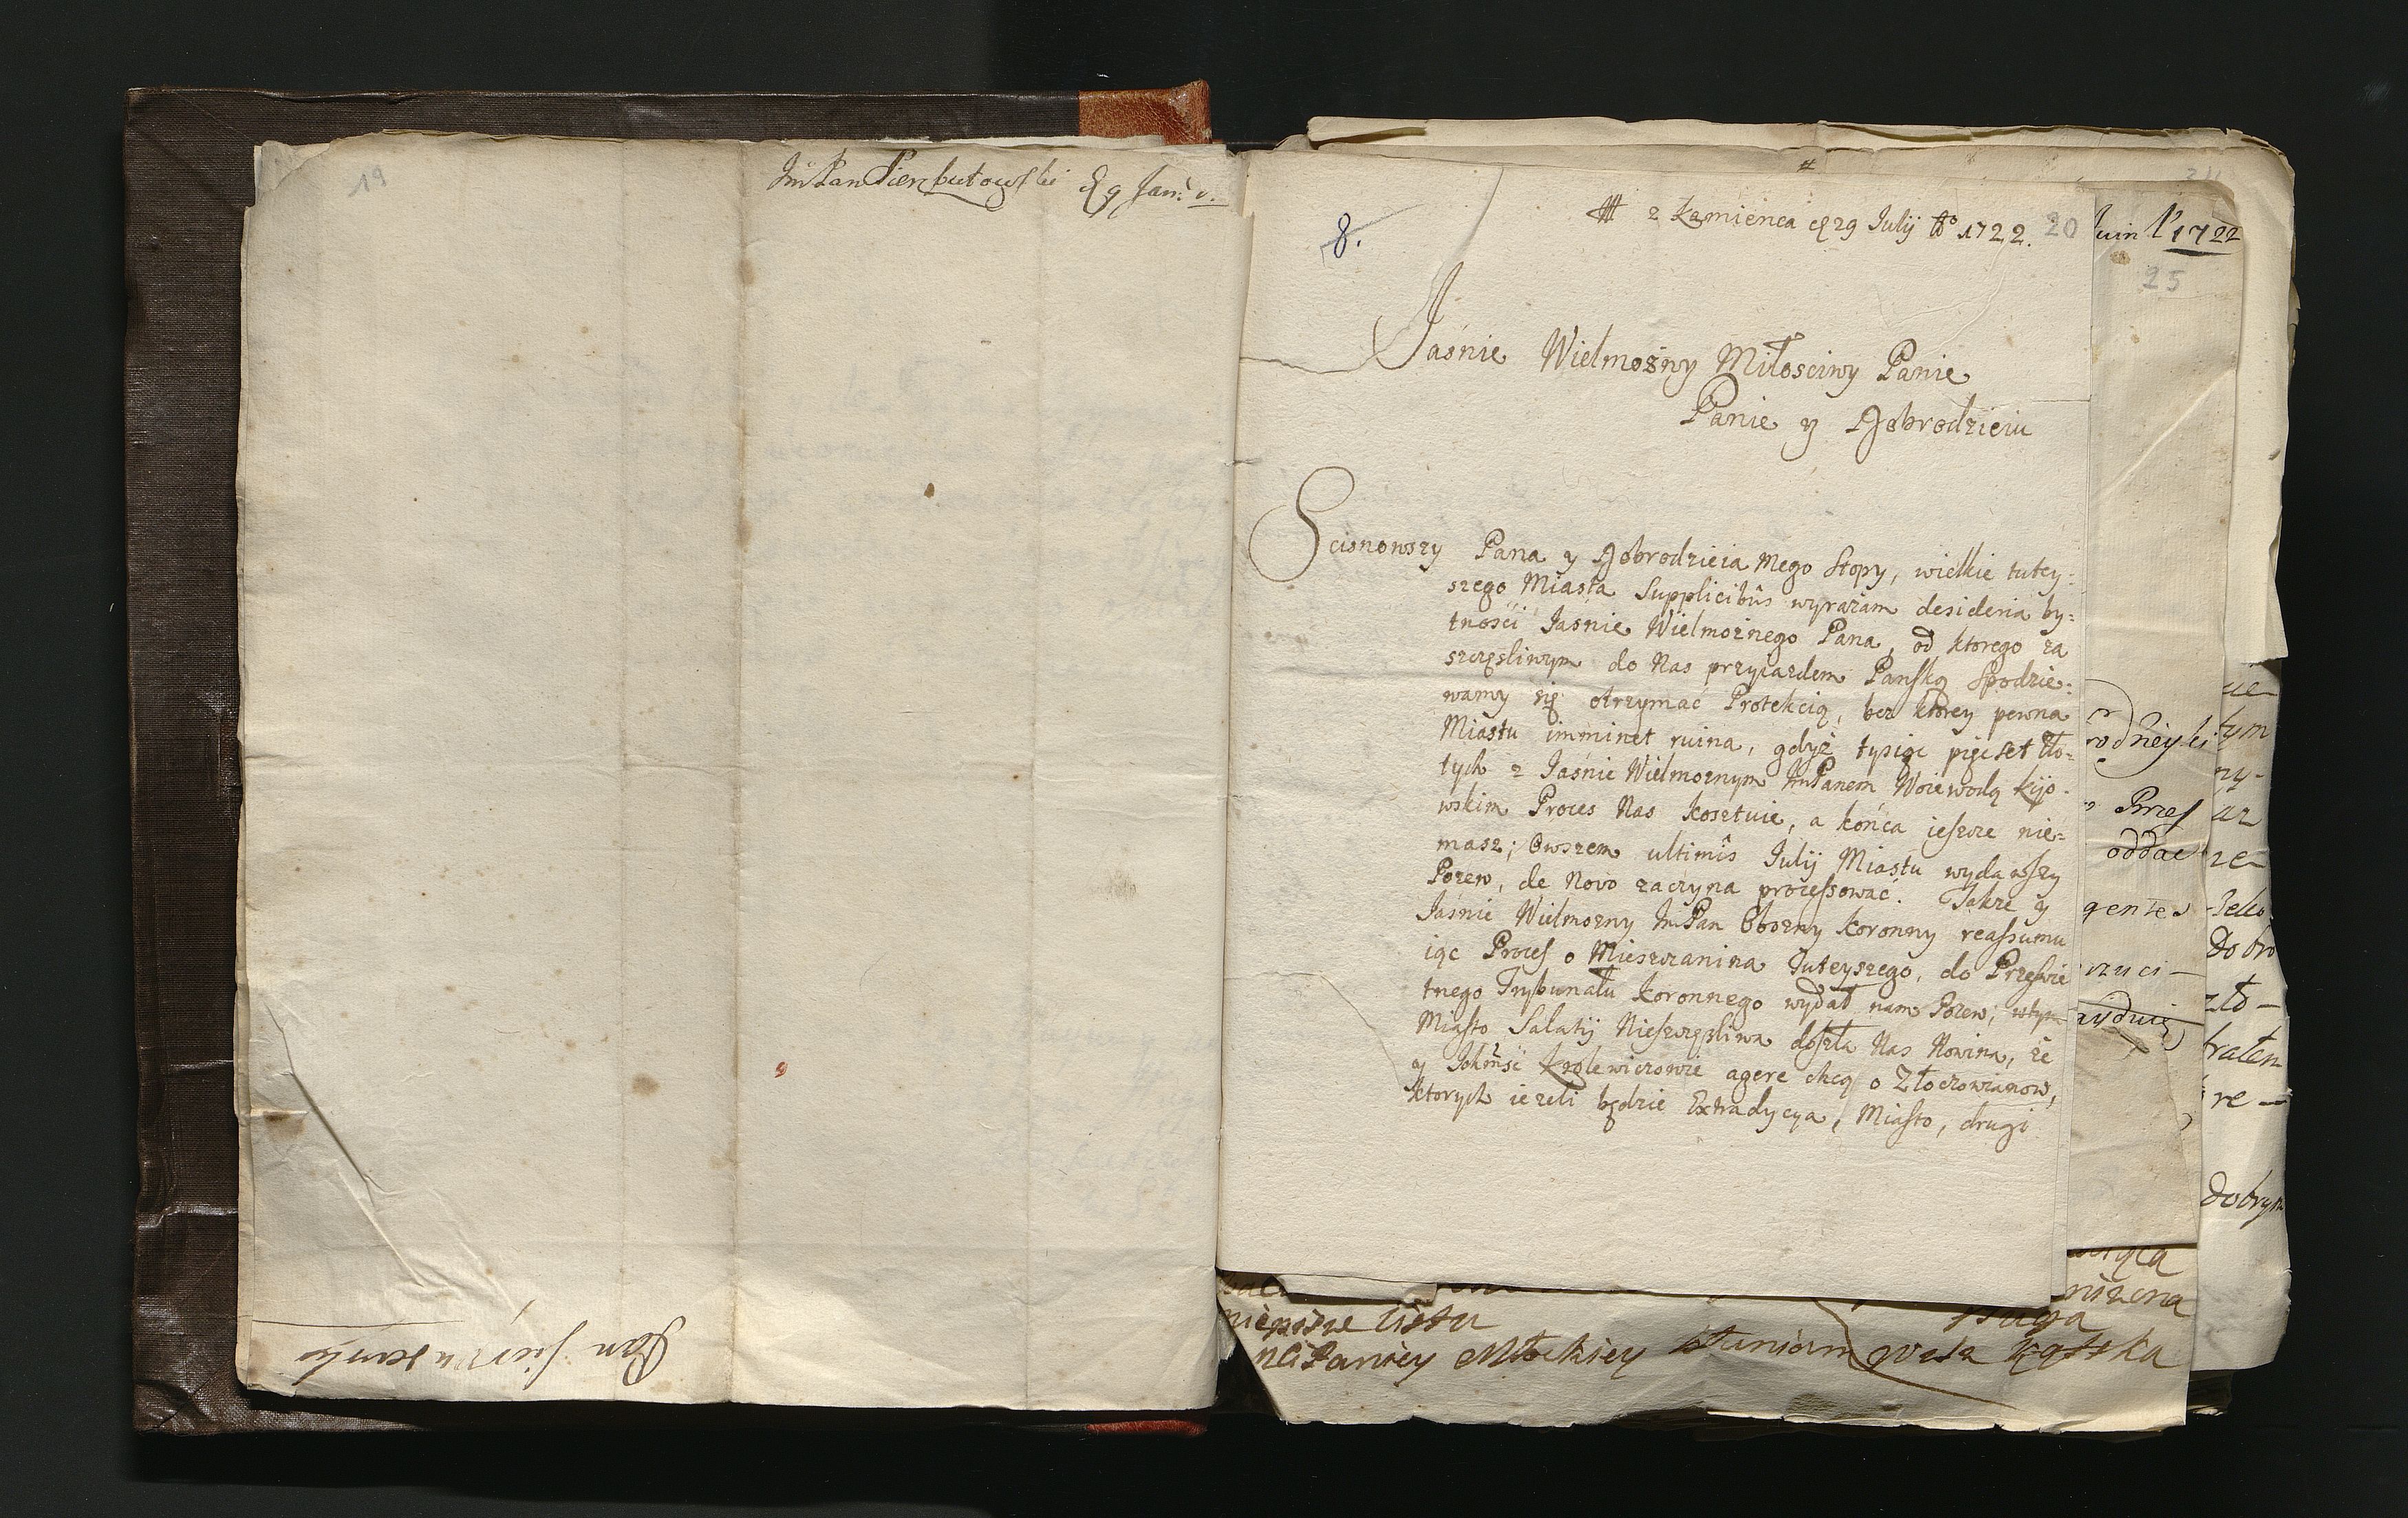 19
ImPan Pierzbutowski
8.
z Kamienca 29 Julij Ao 1722. 20
Jaśnie Wielmożny Miłosciwy Panie
Panie y Dobrodzieiu
Scisnowszy Pana y Dobrodzieia Mego Stopy, wielkie tutey:
szego Miasta Supplicibûs wyrażam desideria by:
tności Jaśnie Wielmożnego Pana, od ktorego za
szczęsliwym do Nas przyiazdem Panską Spodzie:
wamy się otrzymać Protekcią, bez ktorey pewna
Miastu imminet ruina, gdyż tysiąc pięcset Zło:
tych z Jaśnie Wielmoznym ImPanem Woiewodą Kijo:
wskim Proces Nas kosztuie, a końca ieszcze nie:
masz; Owszem ultimîs Julij Miastu wydawszy
Pozew, de Novo zaczyna processować. Takze y
Jaśnie Wielmozny ImPan Obozny Koronny reassumu
iąc Proces o Mieszczanina Tuteyszego, do Przeswie
tnego Trybunału Koronnego wydał nam Pozew; wtym
Miasto Salatij Nieszczęsliwa doszła Nas Nowina, że
y Ichmść Krolewiczowie agere chcą o Złoczowianow,
ktorych iezeli będzie Extradycya, Miasto, drugi
Juin 1722
25
Proces
oddac
dobrym
niepisze listu
Paniey Młockiey